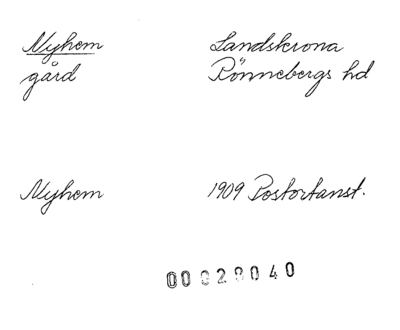 Nyhem Landskrona
gård Rönnebergs hd
Nyhem 1909 Postortanst.
00028040